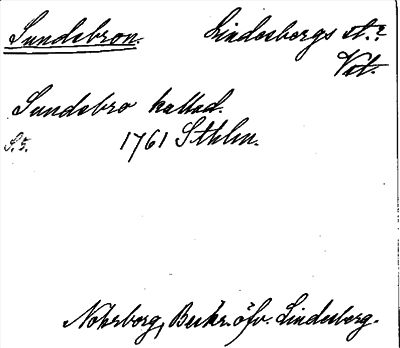 Sundebron. Lindesbergs st.?
Vst.
Sundebro kallad.
S. 5. 1761 Sthlm.
Nohrborg, Beskr. öfv. Lindesberg.